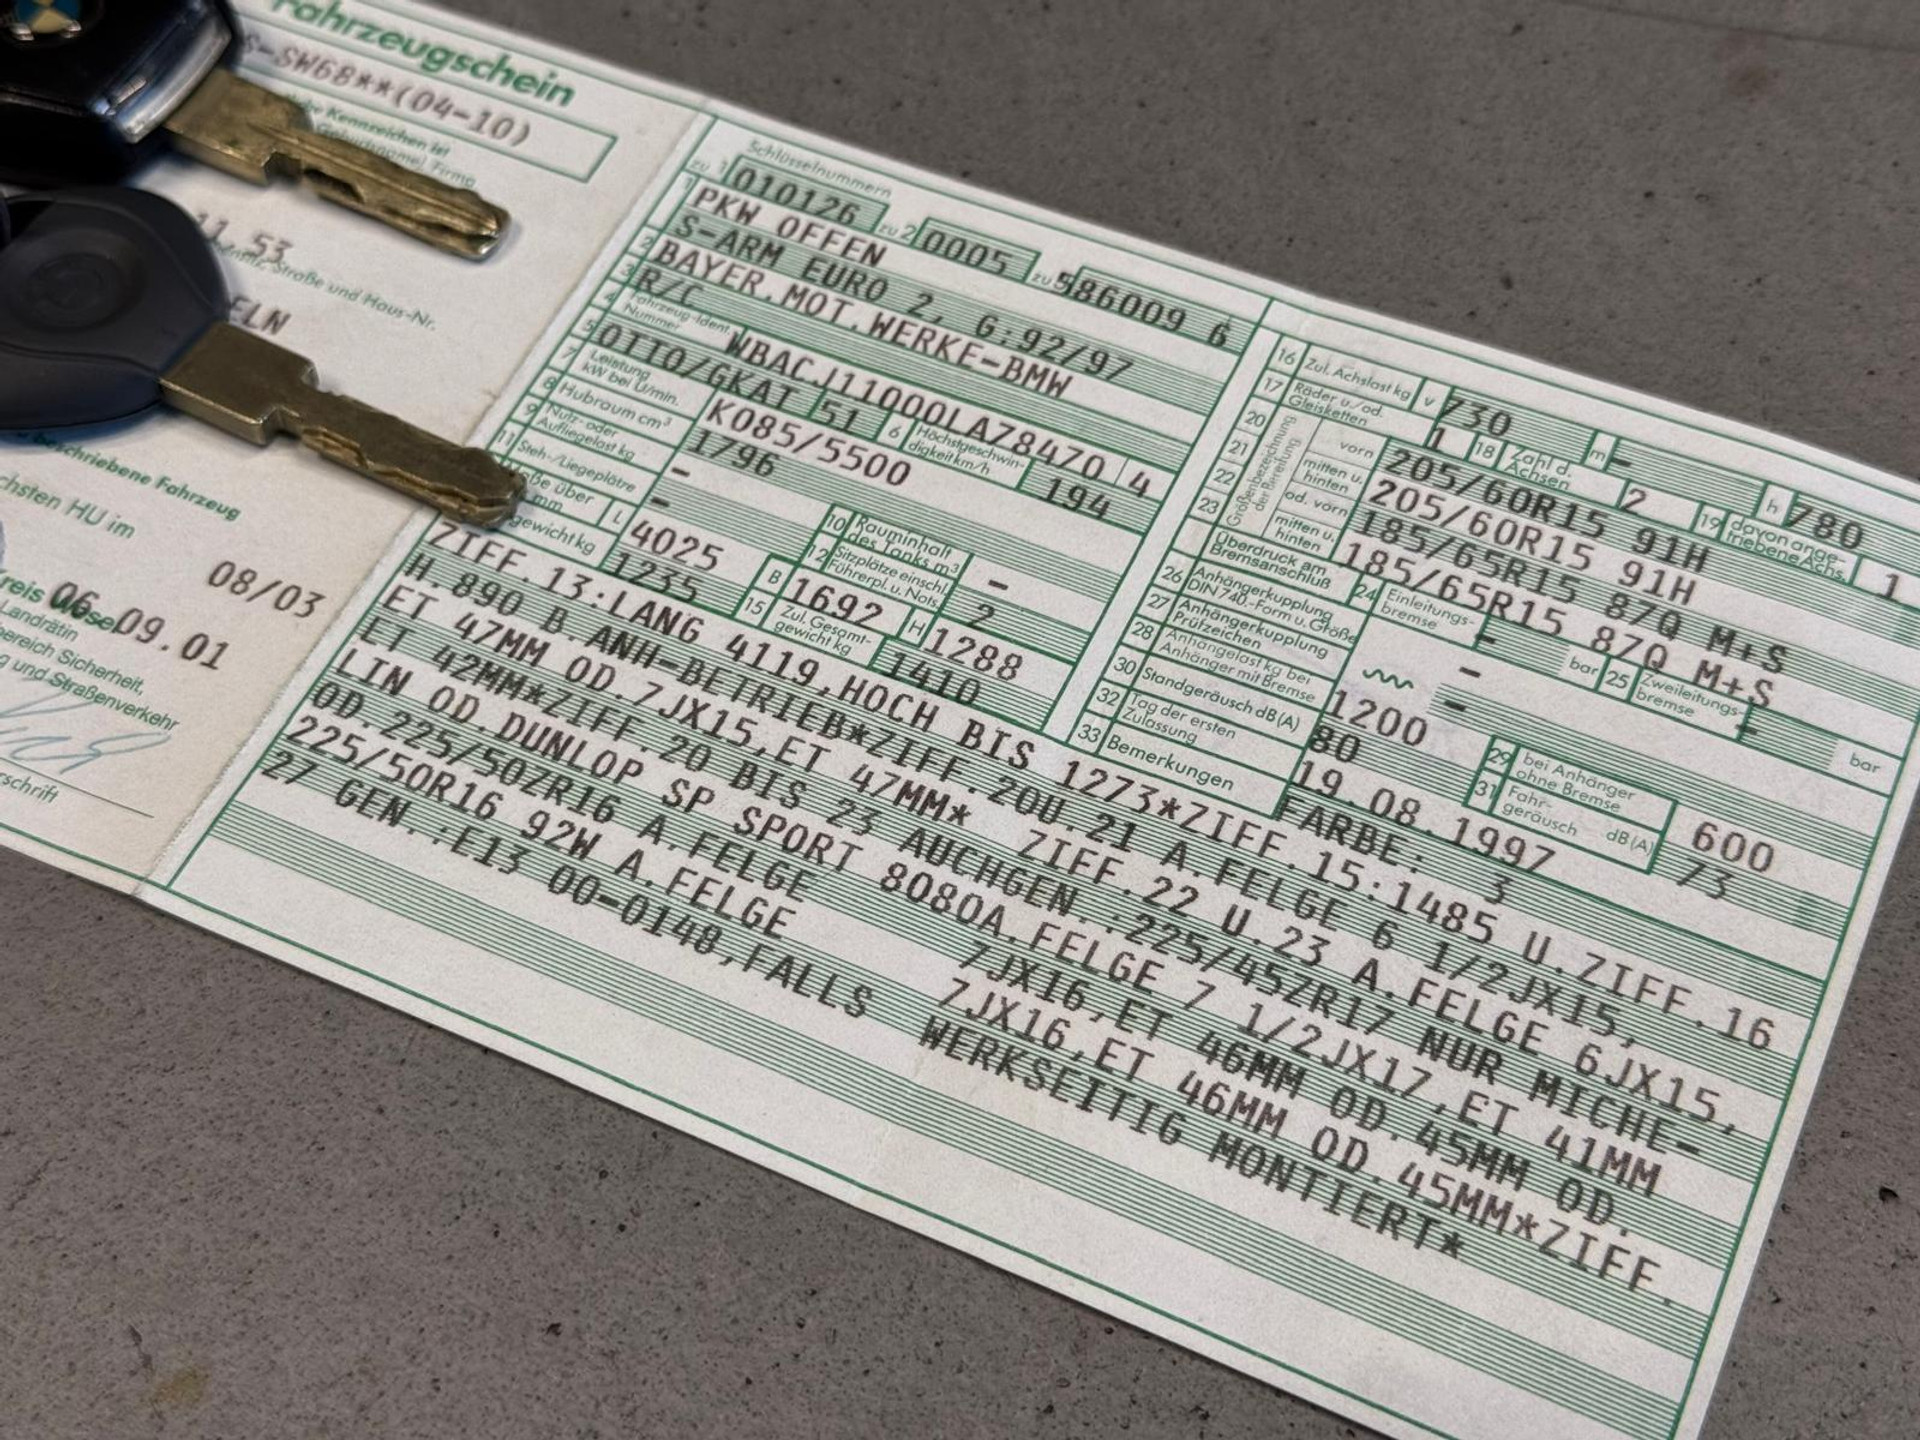 Fahrzeugschein
S-SW68**(04-10)
Kennzeichen ist
Firma
11.53
Straße und Haus-Nr.
ELN
beschriebene Fahrzeug
chsten HU im
08/03
06.09.01
Landrätin
bereich Sicherheit,
g und Straßenverkehr
rschrift
Schlüsselnummern
zu 1 010126 zu 2 0005 zu 5 86009 6
1 PKW OFFEN
S-ARM EURO 2, G:92/97
2 BAYER.MOT.WERKE-BMW
3 R/C
4 Fahrzeug-Ident. Nummer WBACJ11000LA78470 4
5 OTTO/GKAT 51 6 Höchstgeschwin-digkeit km/h 194
7 Leistung kW bei U/min. K085/5500
8 Hubraum cm³ 1796
9 Nutz- oder Aufliegelast kg - 10 Rauminhalt des Tanks m³ -
11 Steh-/Liegeplätze - 12 Sitzplätze einschl. Führerpl. u. Nots. 2
ße über mm L 4025 B 1692 H 1288
gewicht kg 1235 15 Zul. Gesamt-gewicht kg 1410
16 Zul. Achslast kg v 730 m - h 780
17 Räder u./od. Gleisketten 1 18 Zahl d. Achsen 2 19 davon ange-triebene Achs. 1
Größenbezeichnung der Bereifung
20 vorn 205/60R15 91H
21 mitten u. hinten 205/60R15 91H
22 od. vorn 185/65R15 87Q M+S
23 mitten u. hinten 185/65R15 87Q M+S
Überdruck am Bremsanschluß 24 Einleitungs-bremse - bar 25 Zweileitungs-bremse - bar
26 Anhängerkupplung DIN 740-Form u. Größe -
27 Anhängerkupplung Prüfzeichen -
28 Anhängelast kg bei Anhänger mit Bremse 1200 29 bei Anhänger ohne Bremse 600
30 Standgeräusch dB(A) 80 31 Fahr-geräusch dB(A) 73
32 Tag der ersten Zulassung 19.08.1997
33 Bemerkungen FARBE: 3
ZIFF.13:LANG 4119,HOCH BIS 1273*ZIFF.15:1485 U.ZIFF.16
H.890 B.ANH-BETRIEB*ZIFF.20U.21 A.FELGE 6 1/2JX15,
ET 47MM OD.7JX15,ET 47MM* ZIFF.22 U.23 A.FELGE 6JX15,
ET 42MM*ZIFF.20 BIS 23 AUCHGEN.:225/45ZR17 NUR MICHE-
LIN OD.DUNLOP SP SPORT 8080A.FELGE 7 1/2JX17,ET 41MM
OD.225/50ZR16 A.FELGE 7JX16,ET 46MM OD.45MM OD.
225/50R16 92W A.FELGE 7JX16,ET 46MM OD.45MM*ZIFF.
27 GEN.:E13 00-0148,FALLS WERKSEITIG MONTIERT*